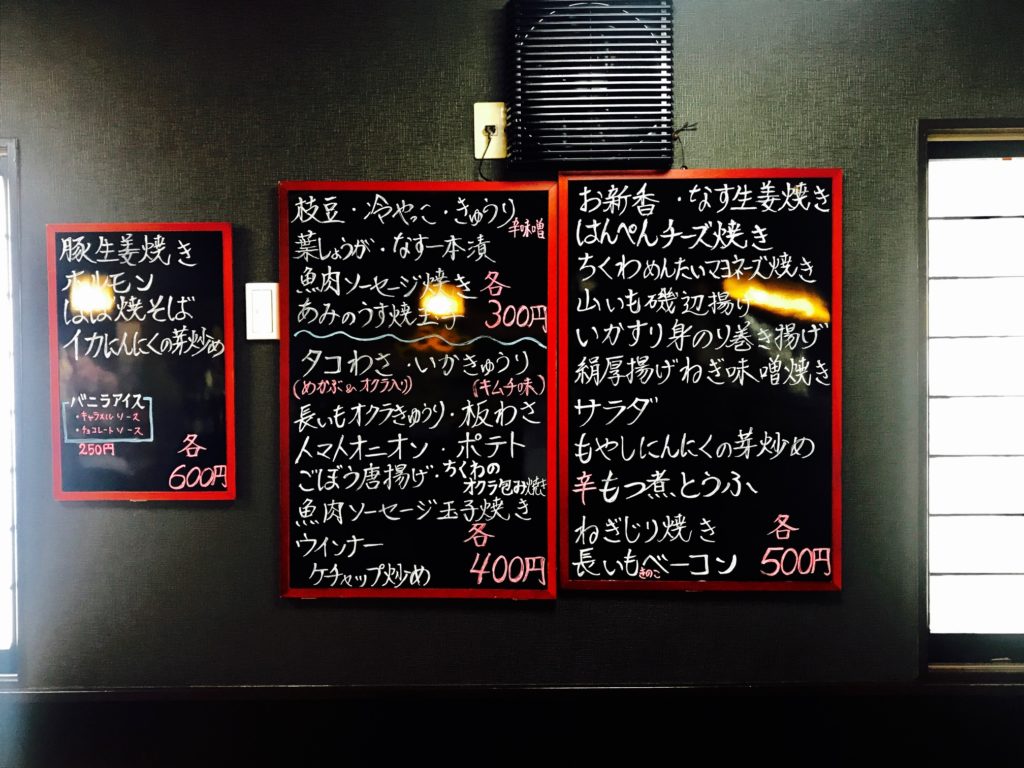 豚生姜焼き
ホルモン
焼そば
イカにんにくの芽炒め
バニラアイス
・キャラメルソース
・チョコレートソース
250円
各
600円
枝豆・冷やっこ・きゅうり
辛味噌
葉しょうが・なす一本漬
魚肉ソーセージ焼き 各
あみのうす焼玉子 300円
タコわさ・いかきゅうり
(めかぶ&オクラ入り) (キムチ味)
長いもオクラきゅうり・板わさ
トマトオニオン・ポテト
ごぼう唐揚げ・ちくわの
オクラ包み焼き
魚肉ソーセージ玉子焼き
ウインナー 各
ケチャップ炒め 400円
お新香・なす生姜焼き
はんぺんチーズ焼き
ちくわめんたいマヨネーズ焼き
山いも磯辺揚げ
いかすり身のり巻き揚げ
絹厚揚げねぎ味噌焼き
サラダ
もやしにんにくの芽炒め
辛もつ煮とうふ
ねぎじり焼き 各
長いもきのこベーコン 500円